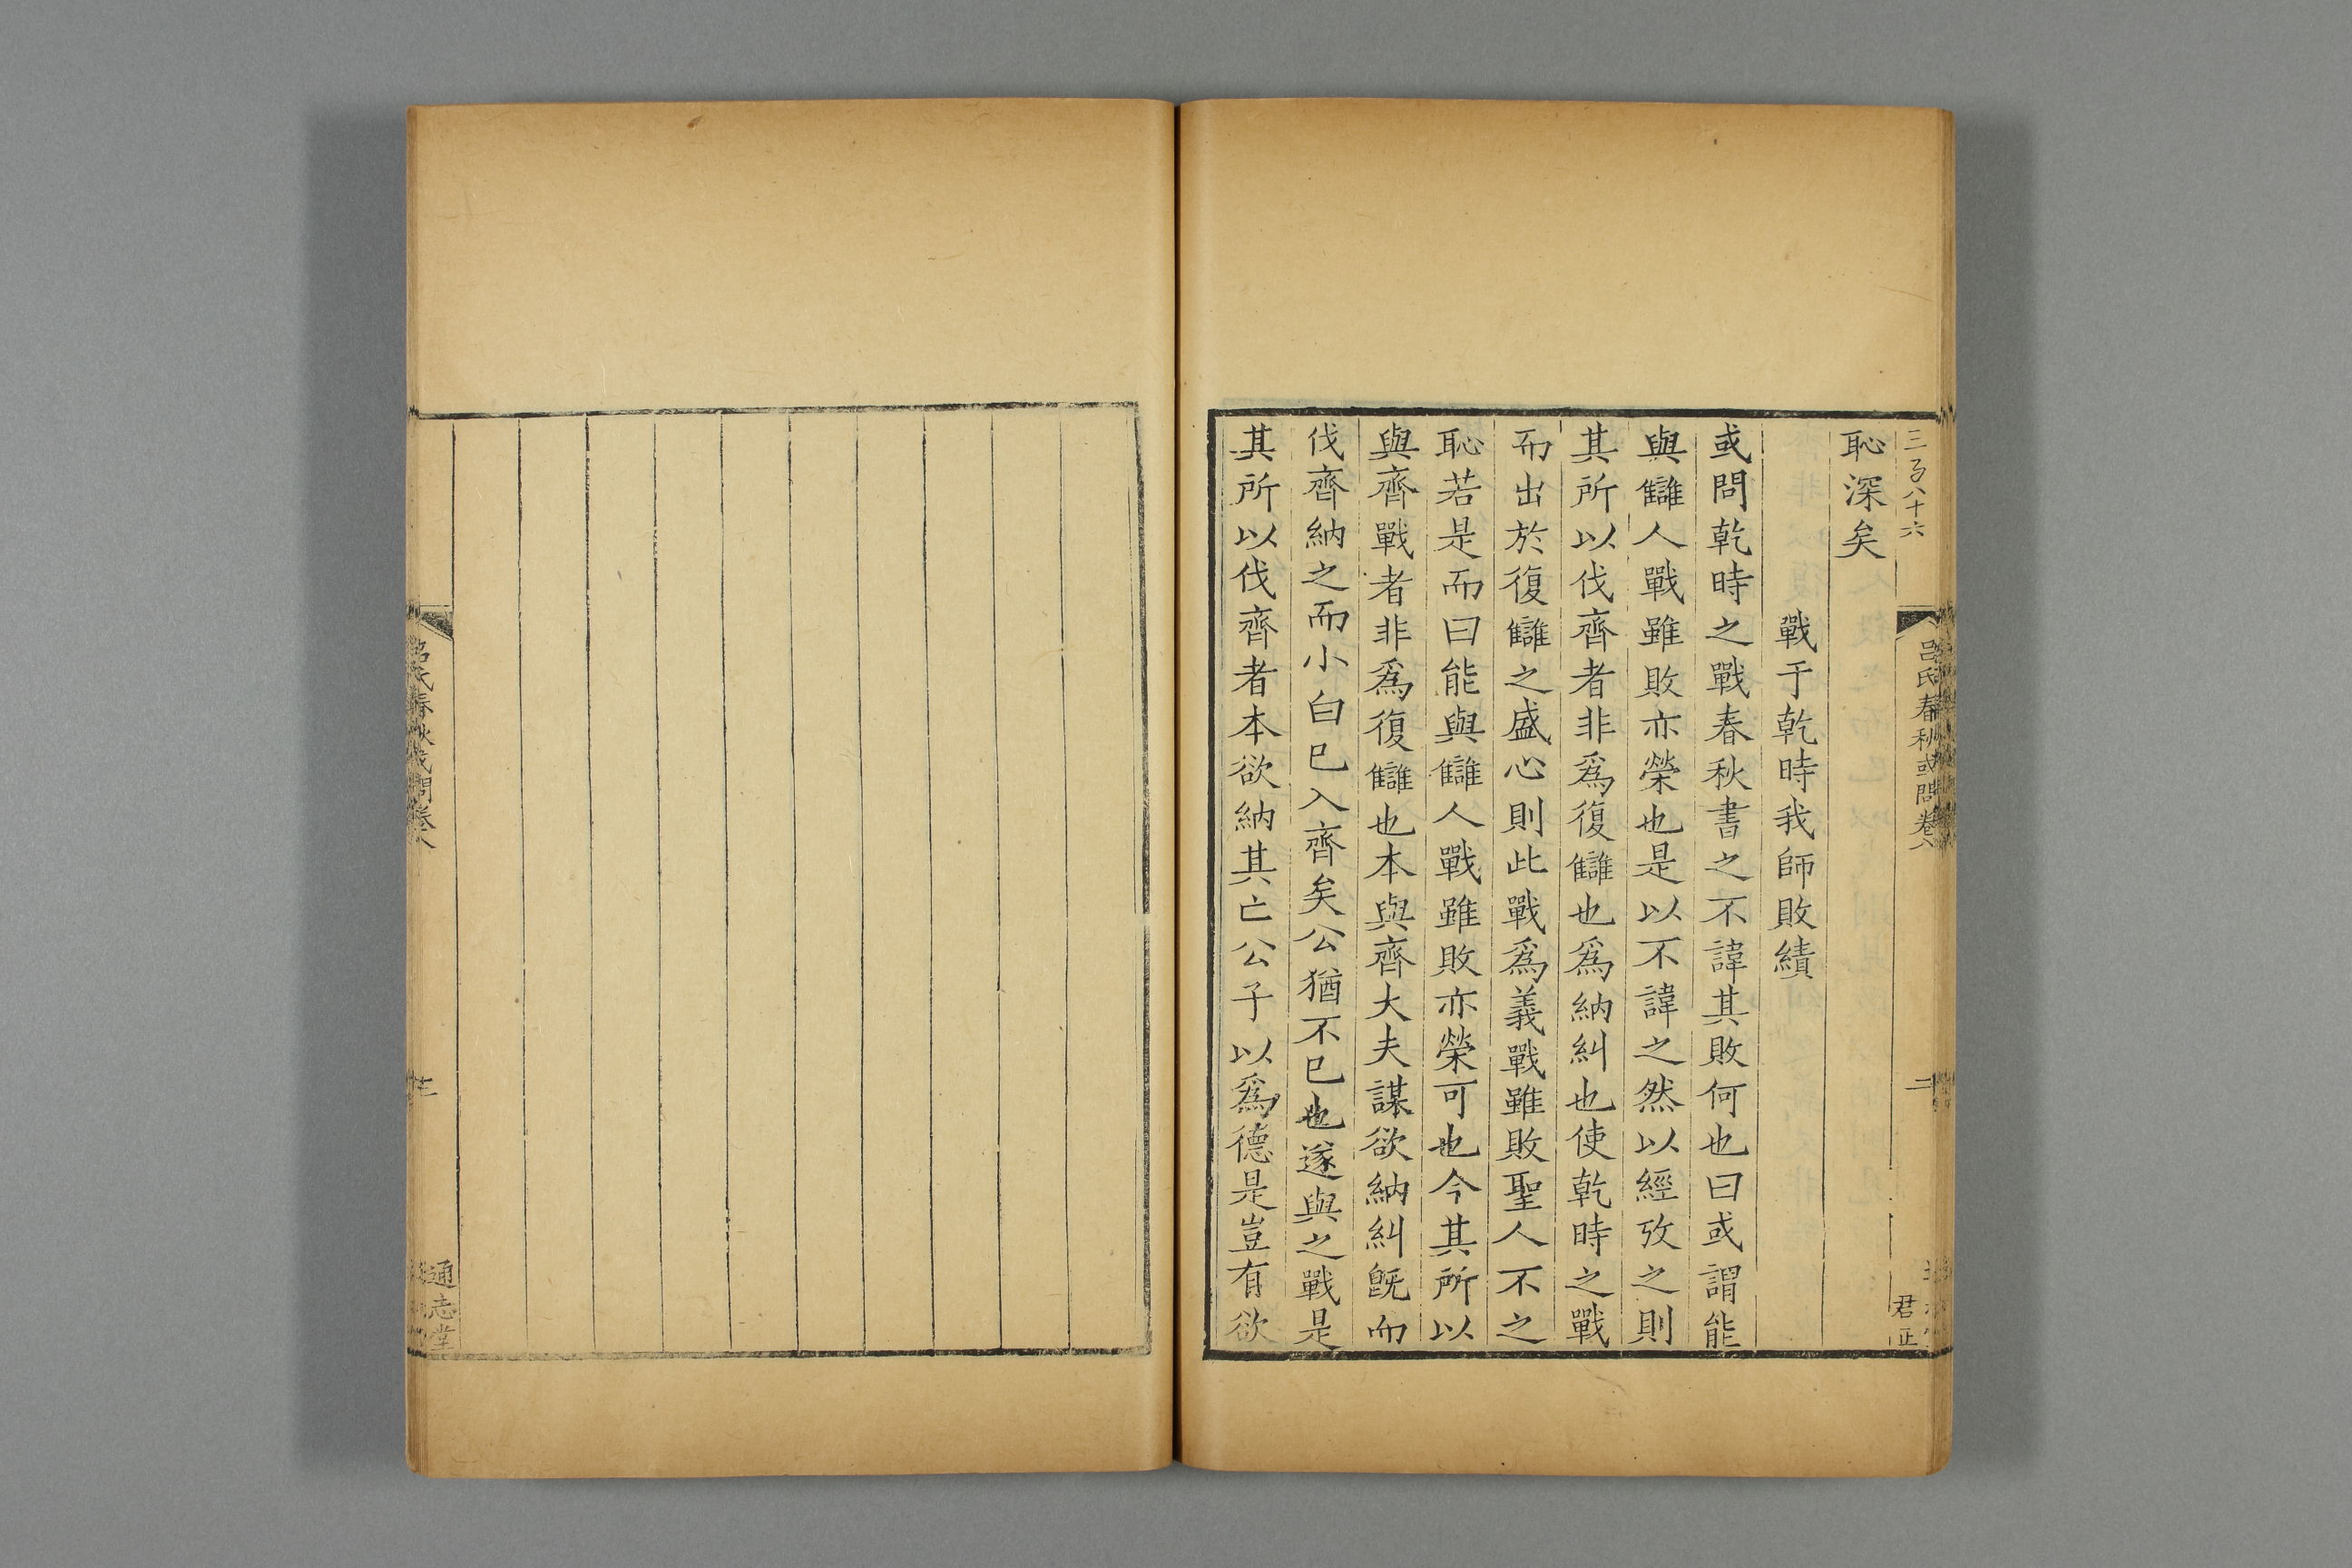 三百八十六
呂氏春秋或問卷八
二
君正
恥深矣
戰于乾時我師敗績
或問乾時之戰春秋書之不諱其敗何也曰或謂能
與讎人戰雖敗亦榮也是以不諱之然以經攷之則
其所以伐齊者非爲復讎也爲納糾也使乾時之戰
而出於復讎之盛心則此戰爲義戰雖敗聖人不之
恥若是而曰能與讎人戰雖敗亦榮可也今其所以
與齊戰者非爲復讎也本與齊大夫謀欲納糾旣而
伐齊納之而小白已入齊矣公猶不已也遂與之戰是
其所以伐齊者本欲納其亡公子以爲德是豈有欲
呂氏春秋或問卷八
通志堂